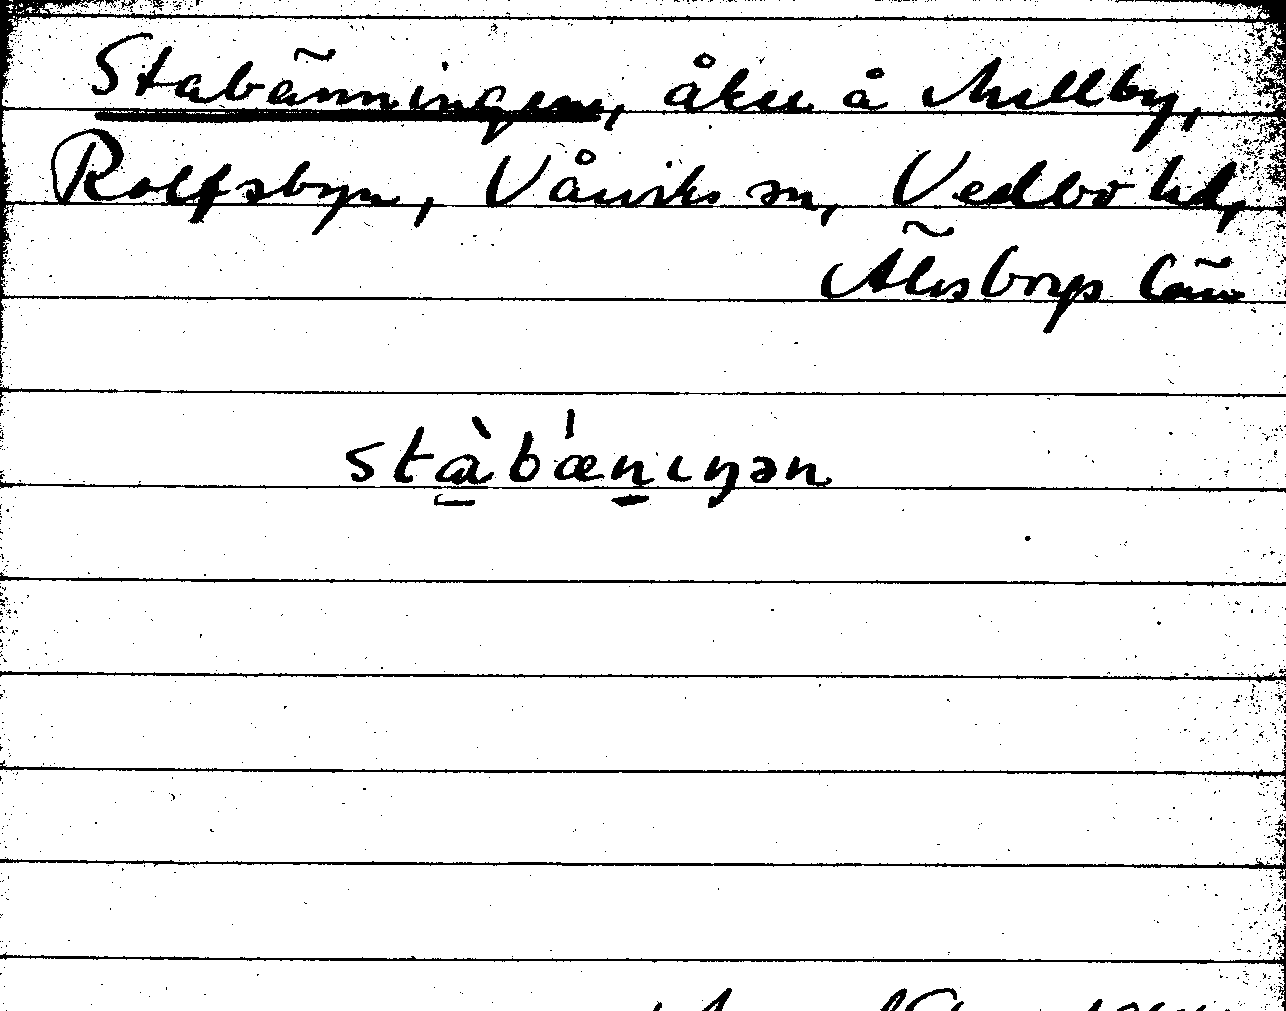 Stabänningen, åker å Mellby,
Rolfsbyn, Vårviks sn, Vedbo hd,
Älvsborgs län
stàbǽnɩŋən